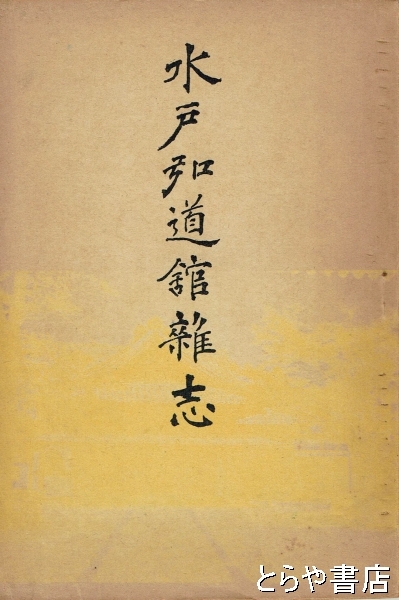 水戸弘道館雜志
とらや書店